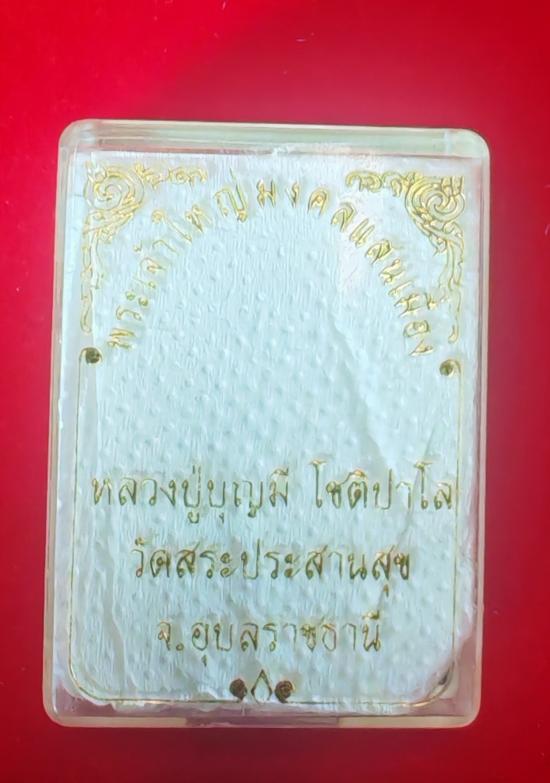 พระเจ้าใหญ่มงคลแสนเมือง
หลวงปู่บุญมี โชติปาโล
วัดสระประสานสุข
จ.อุบลราชธานี